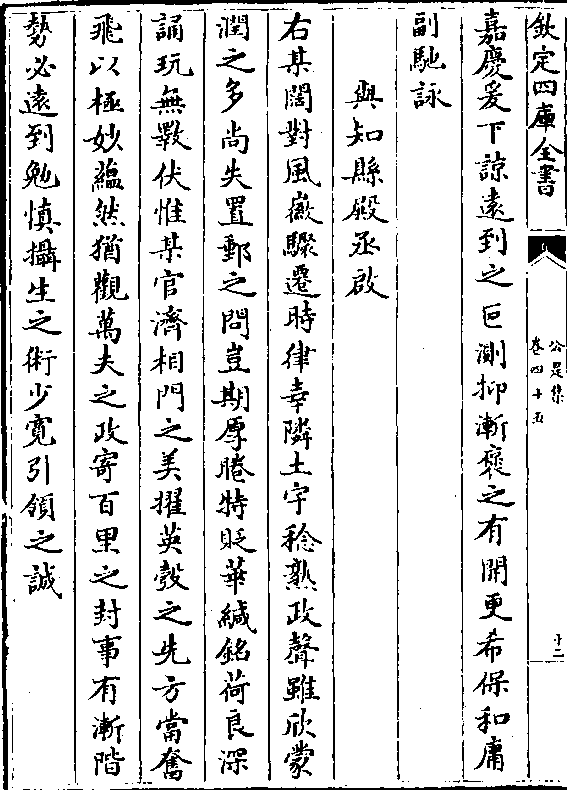 欽定四庫全書
公是集
卷四十五
十二
嘉慶爰下諒遠到之叵測抑漸襃之有開更希保和庸
副馳詠
與知縣殿丞啟
右某闊對風徽驟遷時律幸隣土宇稔熟政聲雖欣蒙
潤之多尚失置郵之問豈期厚睠特貶華緘銘荷良深
誦玩無斁伏惟某官濟相門之美擢英彀之先方當奮
飛以極妙蘊然猶觀萬夫之政寄百里之封事有漸階
勢必遠到勉慎攝生之術少寛引領之誠